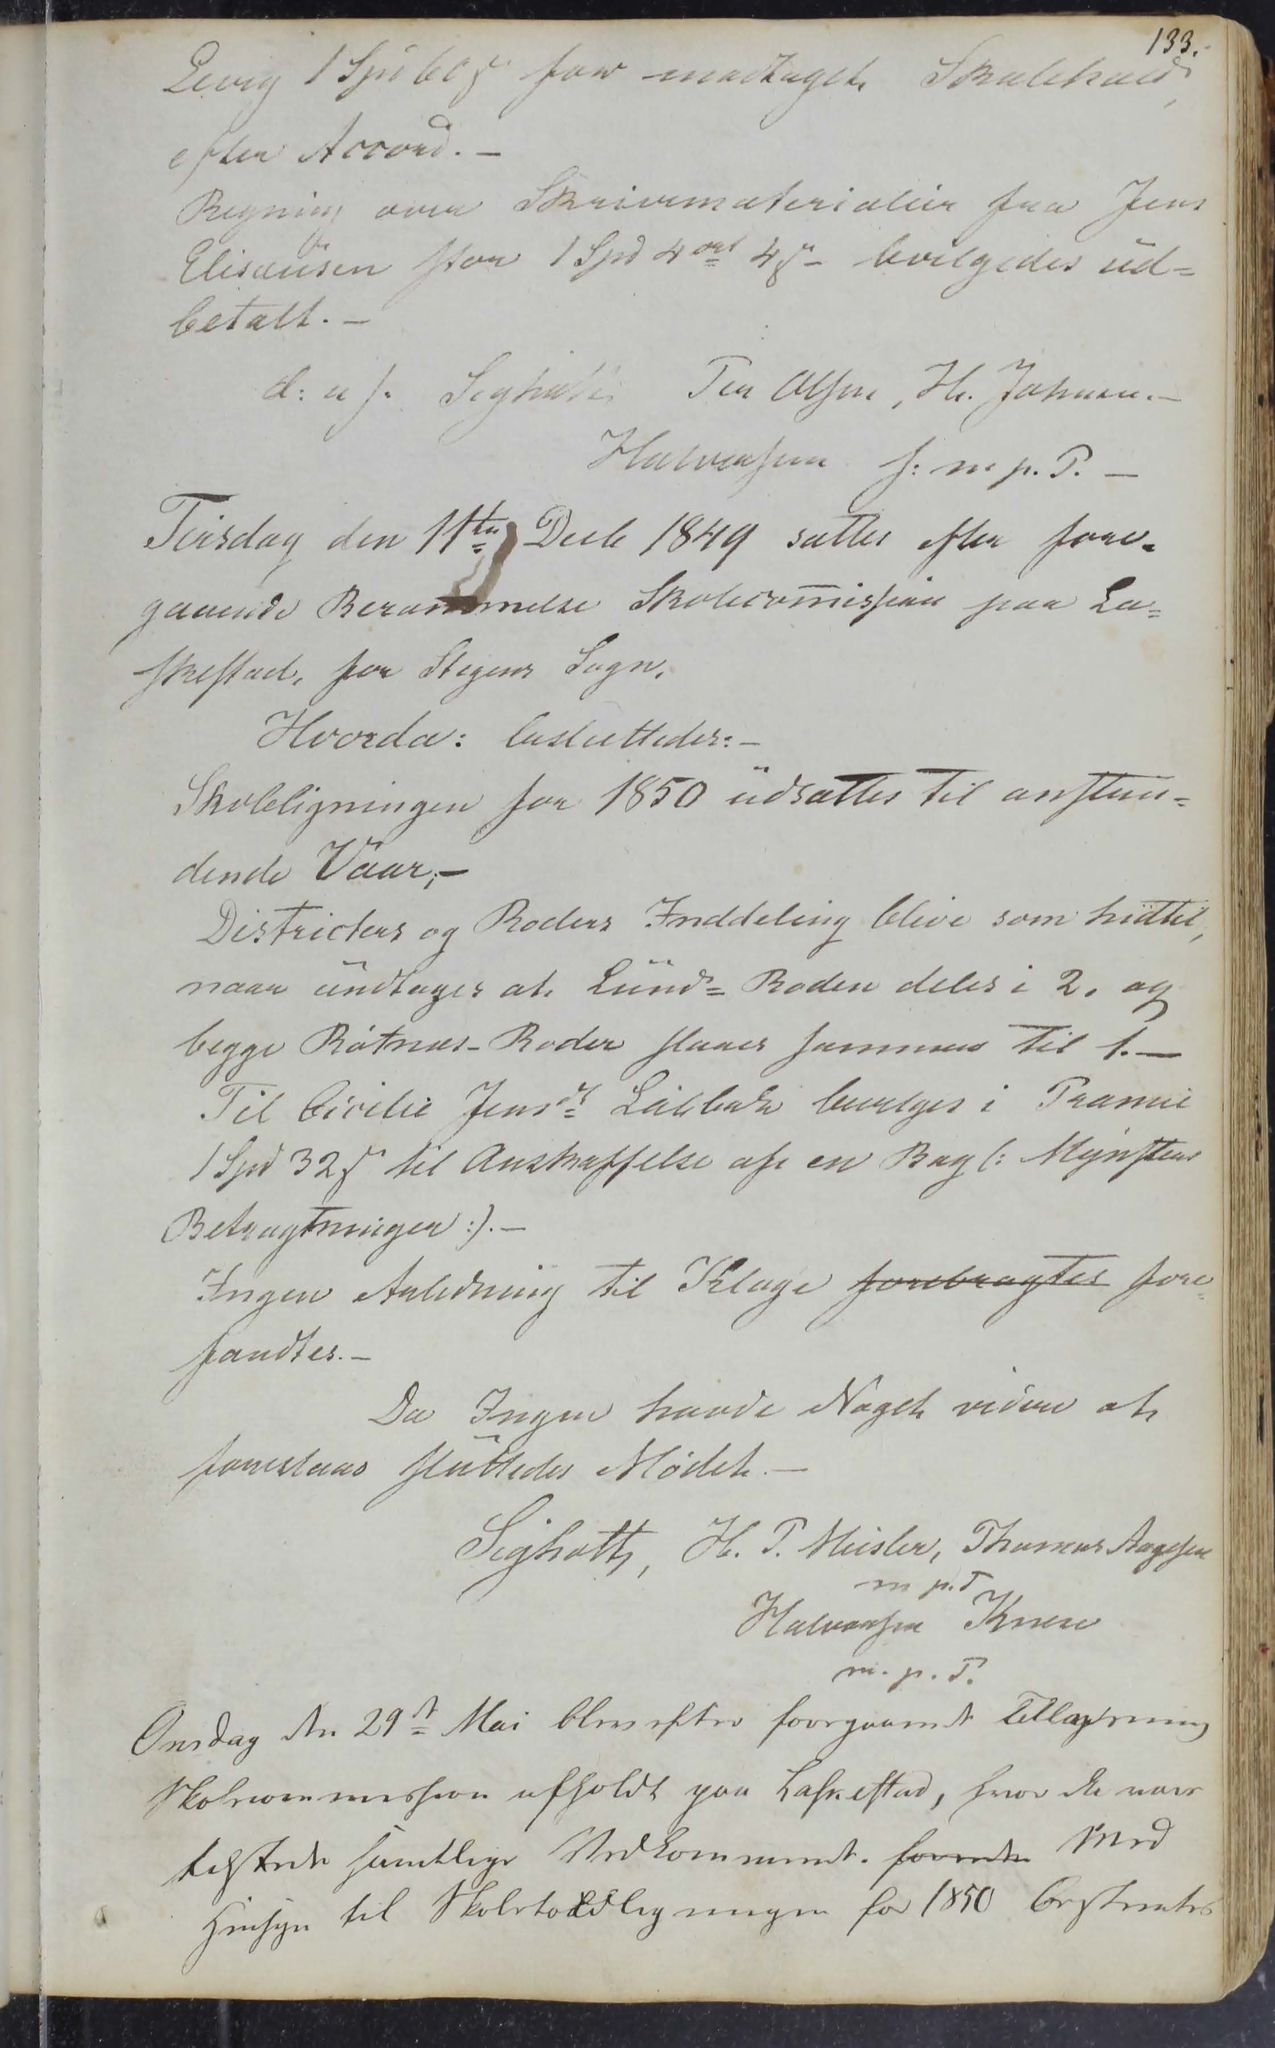 133.
Levig 1 Spd 60 s for modtaget Skolehold,
efter Accord. —
Regning over Skrivematerialier fra Jens
Elisæusen stor 1 Spd 4 ort 4 s – bevilgedes ud=
betalt. —
d: u s. Sigholt, Peer Olsen, H. Johnsen. —
Halvorsen f: m p. P. —
Tirsdag den 11te Decbr 1849 sattes efter fore=
gaaende Berammelse Skolecomission paa La=
skestad, for Stegens Sogn.
Hvorda: besluttedes: —
Skoleligningen for 1850 udsattes til anstun=
dende Vaar, —
Districters og Roders Inddeling blive som hidtil,
naar undtages at Lund= Roden deles i 2, og
begge Røtnæs-Roder slaaes sammen til 1. —
Til Cicilie Jensdt Leikbak bevilges i Præmie
1 Spd 32 s til Anskaffelse af en Bog (: Mynsters
Betragtninger :). —
Ingen Anledning til Klage forebragtes fore=
fandtes. —
Da Ingen havde Noget videre at
foreslaae sluttedes Mødet. —
Sigholt, H. P. Meisler, Thomas Aagesen
m p. P
Halvorsen Knæe
m. p. P.
Onsdag den 29d Mai blev efter foregaaende Tillysning
Skolecommission afholdt paa Laskestad, hvor da vare
tilstede samtlige Vedkommende. Med
Hensyn til Skoletoldligningen for 1850 bestemtes